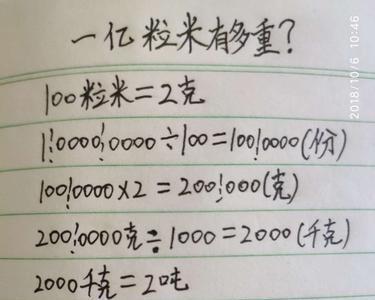 一亿粒米有多重?
2018/10/6 10:46
100粒米=2克
1¦0000¦0000÷100=100¦0000(份)
100¦0000×2=200¦000(克)
200¦0000克÷1000=2000(千克)
2000千克=2吨